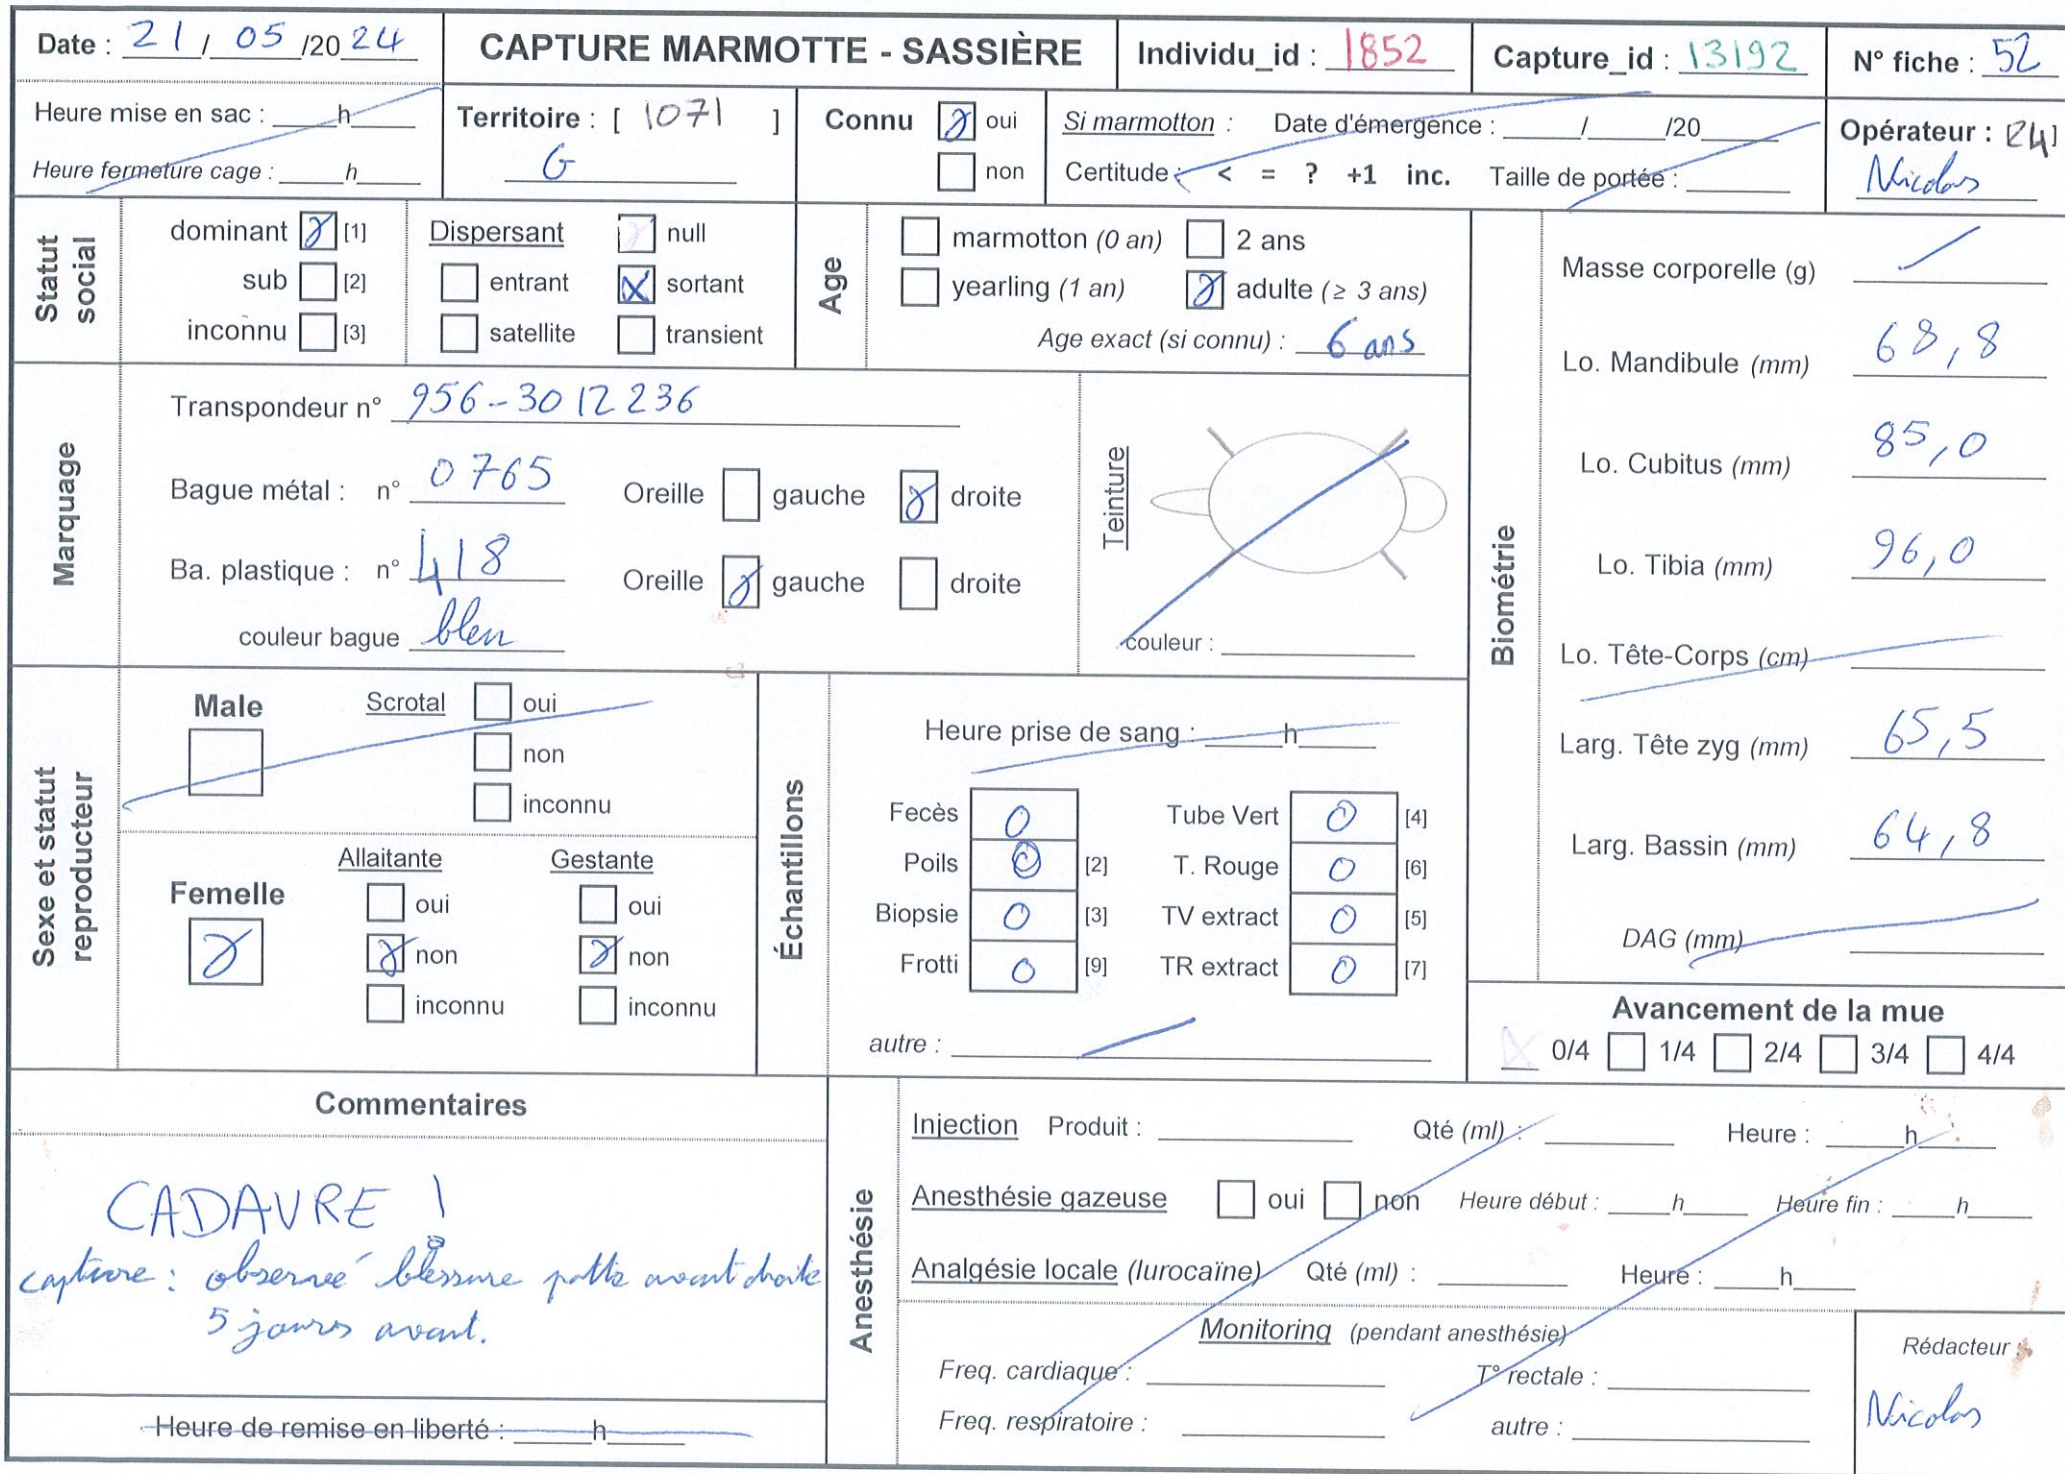 Date : 21 / 05 /20 24
CAPTURE MARMOTTE - SASSIÈRE
Individu_id : 1852
Capture_id : 13192
N° fiche : 52
Heure mise en sac : ____h____
Heure fermeture cage : ____h____
Territoire : [ 1071 ]
G
Connu oui
non
Si marmotton : Date d'émergence : ____/____/20____
Certitude : < = ? +1 inc. Taille de portée : ____
Opérateur : [24]
Nicolas
Statut social
dominant [1]
sub [2]
inconnu [3]
Dispersant null
entrant sortant
satellite transient
Age
marmotton (0 an) 2 ans
yearling (1 an) adulte (≥ 3 ans)
Age exact (si connu) : 6 ans
Marquage
Transpondeur n° 956-3012236
Bague métal : n° 0765 Oreille gauche droite
Ba. plastique : n° 418 Oreille gauche droite
couleur bague bleu
Teinture
couleur :
Biométrie
Masse corporelle (g)
Lo. Mandibule (mm) 68,8
Lo. Cubitus (mm) 85,0
Lo. Tibia (mm) 96,0
Lo. Tête-Corps (cm)
Larg. Tête zyg (mm) 65,5
Larg. Bassin (mm) 64,8
DAG (mm)
Sexe et statut reproducteur
Male
Scrotal oui
non
inconnu
Femelle
Allaitante
oui
non
inconnu
Gestante
oui
non
inconnu
Échantillons
Heure prise de sang : ____h____
Fecès 0 Tube Vert 0 [4]
Poils 0 [2] T. Rouge 0 [6]
Biopsie 0 [3] TV extract 0 [5]
Frotti 0 [9] TR extract 0 [7]
autre :
Avancement de la mue
0/4 1/4 2/4 3/4 4/4
Commentaires
CADAVRE !
capture : observée blessure patte avant droite
5 jours avant.
Heure de remise en liberté : ____h____
Anesthésie
Injection Produit : ____ Qté (ml) : ____ Heure : ____h____
Anesthésie gazeuse oui non Heure début : ____h____ Heure fin : ____h____
Analgésie locale (lurocaïne) Qté (ml) : ____ Heure : ____h____
Monitoring (pendant anesthésie)
Freq. cardiaque : ____ T° rectale : ____
Freq. respiratoire : ____ autre : ____
Rédacteur :
Nicolas